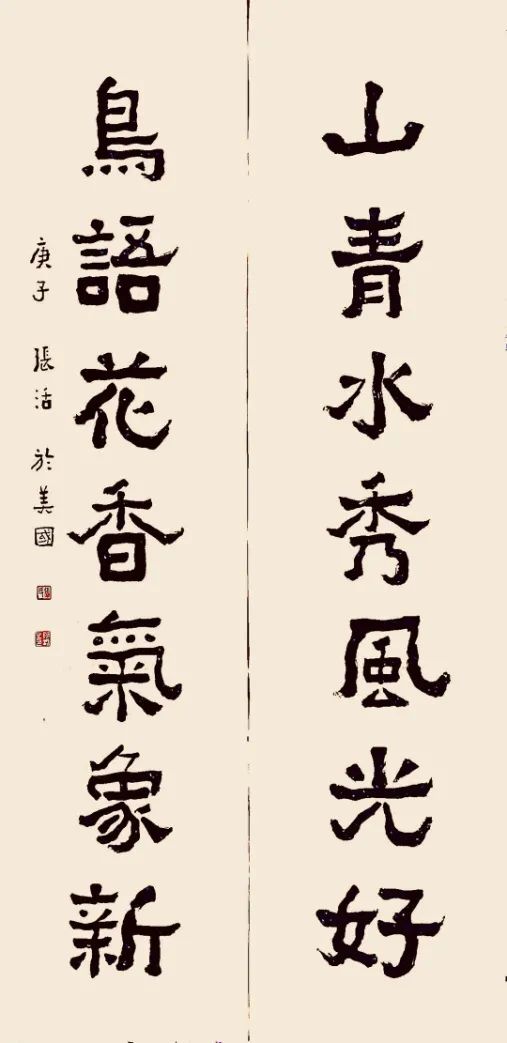 山青水秀風光好
鳥語花香氣象新
庚子 張活 於美國